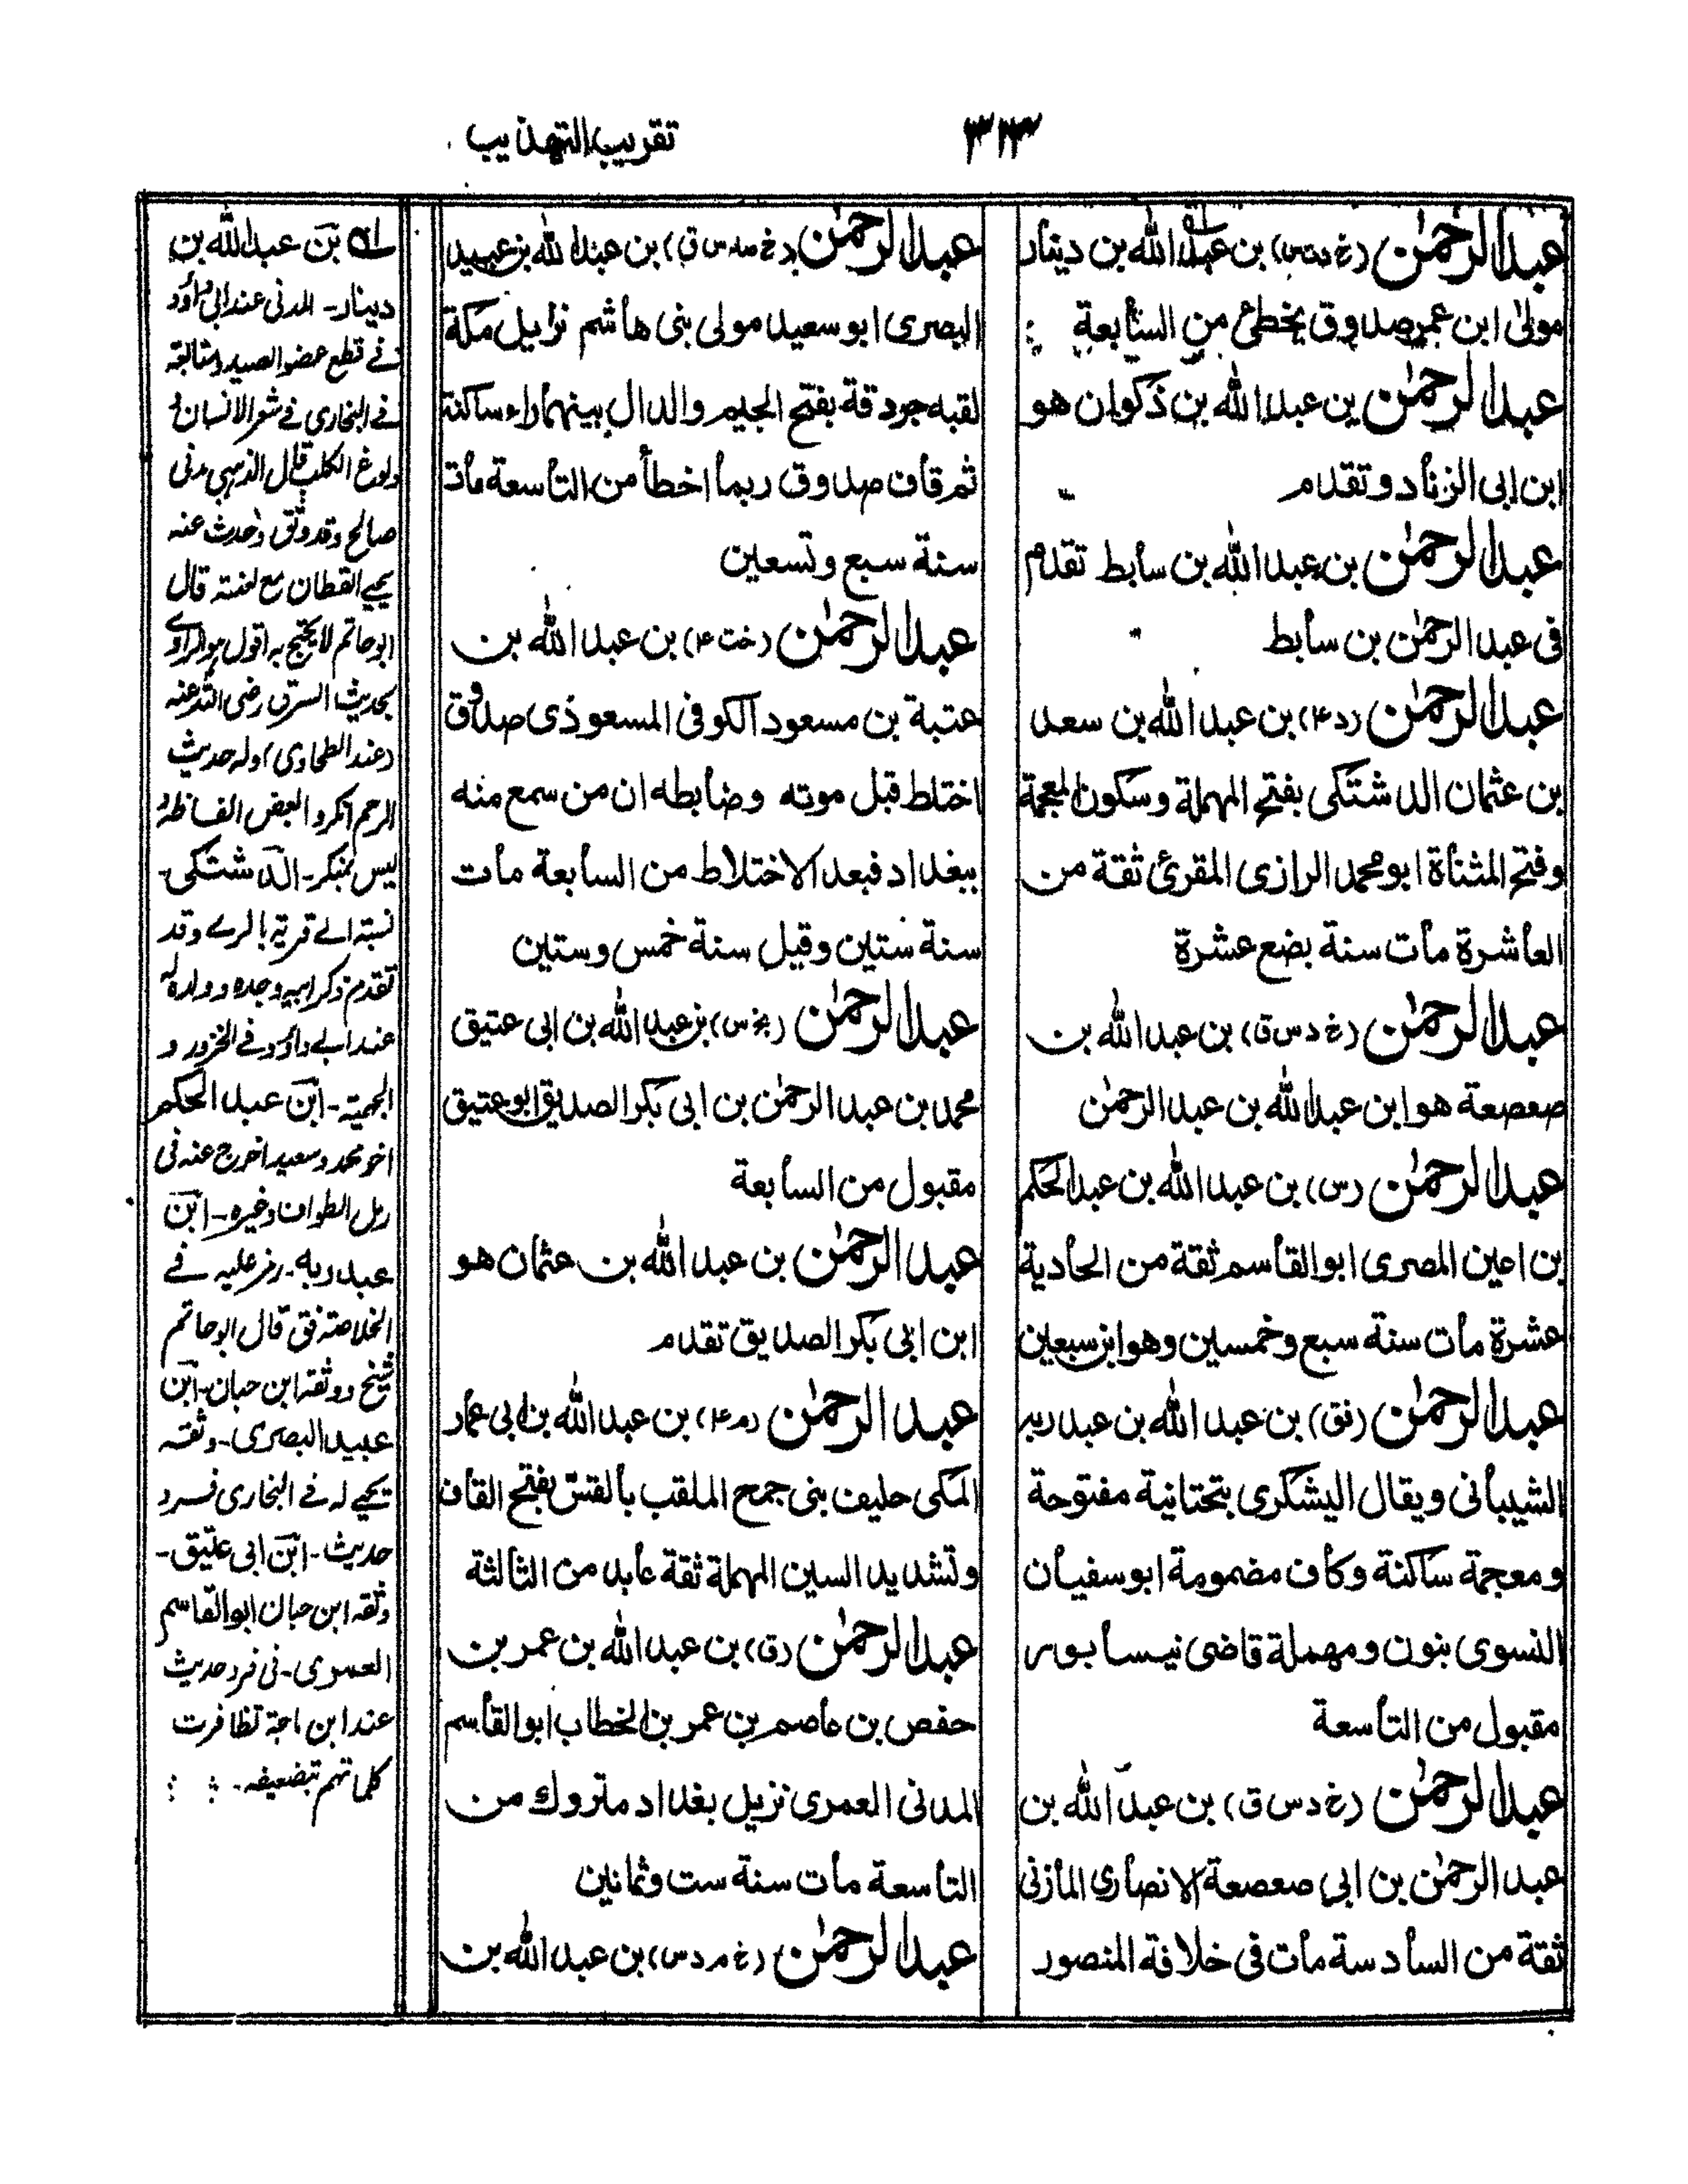 تقريب التهذيب
٣١٣
عبد الرحمٰن (خ د ت س) بن عبد الله بن دينار
مولىٰ ابن عمر صدوق يخطئ من السابعة
عبد الرحمٰن بن عبد الله بن ذكوان هو
ابن ابى الزناد و تقدم
عبد الرحمٰن بن عبد الله بن سابط تقدم
فى عبد الرحمٰن بن سابط
عبد الرحمٰن (د ۴) بن عبد الله بن سعد
بن عثمان الدشتكى بفتح المهملة وسكون المعجمة
وفتح المثناة ابو محمد الرازى المقرئ ثقة من
العاشرة مات سنة بضع عشرة
عبد الرحمٰن (خ د س ق) بن عبد الله بن
صعصعة هو ابن عبد الله بن عبد الرحمٰن
عبد الرحمٰن (س) بن عبد الله بن عبد الحكم
بن اعين المصرى ابو القاسم ثقة من الحادية
عشرة مات سنة سبع وخمسين وهو ابن سبعين
عبد الرحمٰن (فق) بن عبد الله بن عبد ربه
الشيبانى ويقال اليشكرى بتحتانية مفتوحة
ومعجمة ساكنة وكاف مضمومة ابو سفيان
النسوى بنون ومهملة قاضى نيسابور
مقبول من التاسعة
عبد الرحمٰن (خ د س ق) بن عبد الله بن
عبد الرحمٰن بن ابى صعصعة الانصارى المازنى
ثقة من السادسة مات فى خلافة المنصور
عبد الرحمٰن (خ صد س ق) بن عبد الله بن عبيد
البصرى ابو سعيد مولى بنى هاشم نزيل مكة
لقبه جردقة بفتح الجيم والدال بينهما راء ساكنة
ثم قاف صدوق ربما اخطأ من التاسعة مات
سنة سبع وتسعين
عبد الرحمٰن (خت ۴) بن عبد الله بن
عتبة بن مسعود الكوفى المسعودى صدوق
اختلط قبل موته وضابطه ان من سمع منه
ببغداد فبعد الاختلاط من السابعة مات
سنة ستين وقيل سنة خمس وستين
عبد الرحمٰن (بخ س) بن عبد الله بن ابى عتيق
محمد بن عبد الرحمٰن بن ابى بكر الصديق ابو عتيق
مقبول من السابعة
عبد الرحمٰن بن عبد الله بن عثمان هو
ابن ابى بكر الصديق تقدم
عبد الرحمٰن (م ۴) بن عبد الله بن ابى عمار
المكى حليف بنى جمح الملقب بالقسّ بفتح القاف
وتشديد السين المهملة ثقة عابد من الثالثة
عبد الرحمٰن (ق) بن عبد الله بن عمر بن
حفص بن عاصم بن عمر بن الخطاب ابو القاسم
المدنى العمرى نزيل بغداد متروك من
التاسعة مات سنة ست وثمانين
عبد الرحمٰن (خ م د س) بن عبد الله بن
له بن عبد الله بن
دينار- المدنى عند ابى داؤد
فے قطع عضو الصيد ومتابعة
فے البخارى فے شعر الانسان و
ولوغ الكلب قال الذهبى مدنى
صالح وقد وثق وحدث عنه
يحيے القطان مع تعنته قال
ابو حاتم لا يحتج به اقول هو الراوے
بحديث السرق رضى الله عنه
(عند الطحاوى) وله حديث
الرحم انكروا لبعض الفاظه و
ليس بمنكر- الدشتكى-
نسبة الے قرية بالرے وقد
تقدم ذكر ابيه وجده وولده له
عند ابے داؤد فے الخز ورد
الجهمية- ابن عبد الحكم
اخو محمد وسعيد اخرج عنه فى
رمل الطواف وغيره- ابن
عبد ربه- رمز عليه فے
الخلاصة فق قال ابو حاتم
شيخ ووثقه ابن حبان- ابن
عبيد البصرى- وثقه
يحيے له فے البخارى فرد
حديث- ابن ابى عتيق-
وثقه ابن حبان ابو القاسم
العمرى- فى فرد حديث
عند ابن ماجة تظافرت
كلماتهم بتضعيفه-